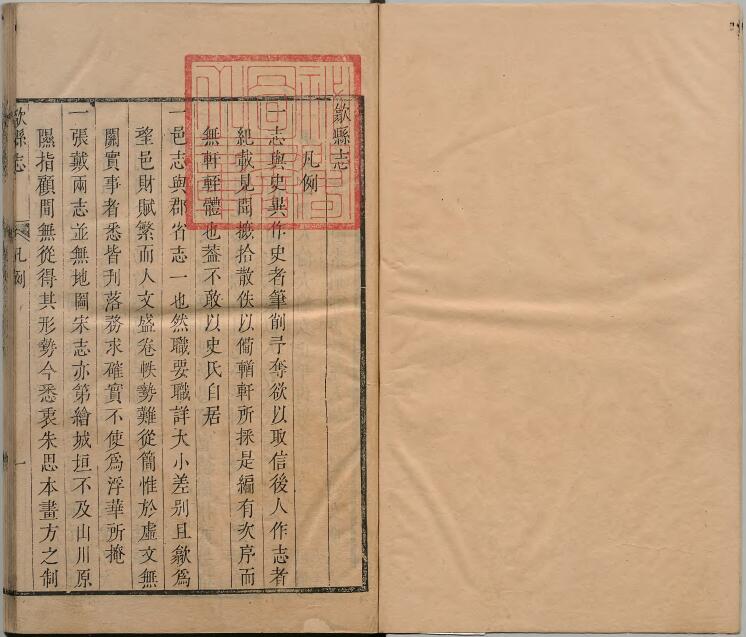 歙縣志
凡例
一志與史異作史者筆削予奪欲以取信後人作志者
紀載見聞摭拾散佚以備輶軒所採是編有次序而
無軒輊體也葢不敢以史氏自居
一邑志與郡省志一也然職要職詳大小差别且歙爲
望邑財賦繁而人文盛卷帙勢難從簡惟於虛文無
關實事者悉皆刋落務求確實不使爲浮華所掩
一張戴兩志並無地圖宋志亦第繪城垣不及山川原
隰指顧間無從得其形勢今悉裵朱思本畫方之制
歙縣志
凡例
一